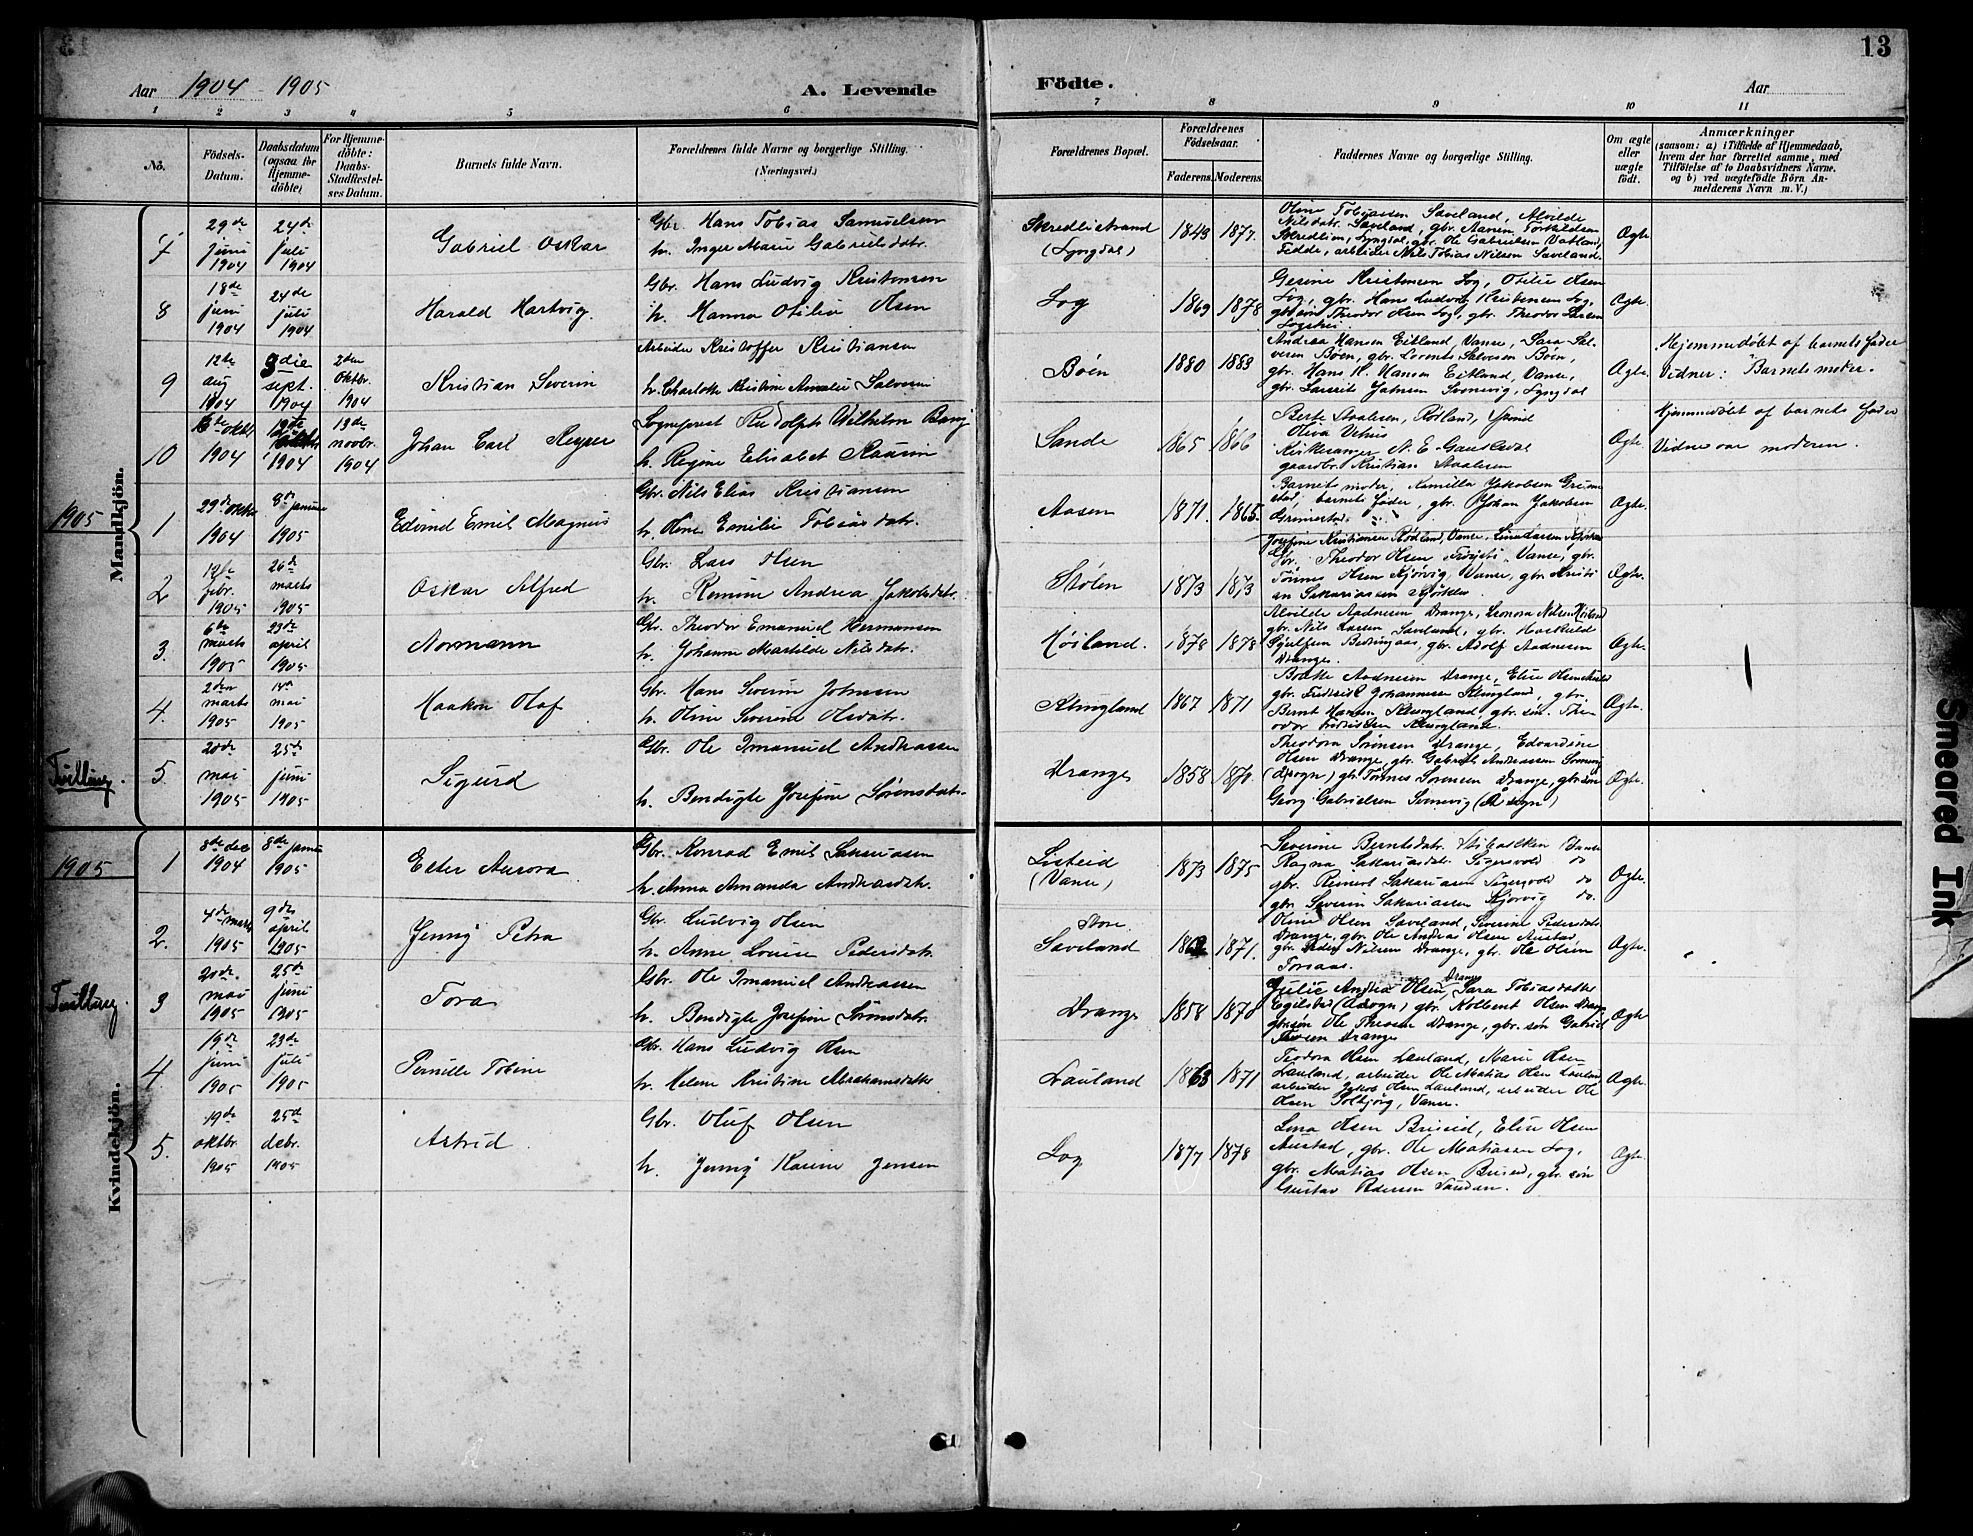 13
Aar 1904 - 1905
A. Levende
Födte.
Aar
1 2 3 4 5 6 7 8 9 10 11
No.
Födsels-
Datum.
Daabsdatum
(ogsaa for
Hjemme-
döbte)
For Hjemme-
döbte:
Daabs-
Stadfæstel-
ses Datum.
Barnets fulde Navn.
Forældrenes fulde Navne og borgerlige Stilling.
(Næringsvei.)
Forældrenes Bopæl.
Forældrenes
Födselsaar.
Faderens. Moderens.
Faddernes Navne og borgerlige Stilling.
Om ægte
eller
uægte
födt.
Anmærkninger
(saasom: a) i Tilfælde af Hjemmedaab,
hvem der har forrettet samme, med
Tilföielse af to Daabsvidners Navne,
og b) ved uægtefödte Börn An-
melderens Navn m. V.)
Mandkjön.
7
29de
Juni
1904
24de
Juli
1904
Gabriel Oskar
Gbr. Hans Tobias Samuelsen
h. Inger Marie Gabrielsdatr.
Skredlistrand
(Lyngdal)
1843 1877.
Oline Tobiassen Saveland, Alvilde
Nilsdatr. Saveland, gbr. Aanen Torkildsen
Skredlien, Lyngdal, gbr. Ole Gabrielsen Vatland,
Fedde, arbeider Nils Tobias Nilsen Saveland.
Ægte
8
18de
juni
1904
24de
juli
1904
Harald Hartvig.
Gbr. Hans Ludvig Kristensen
h. Hanna Otilie Olsen
Log
1869 1878
Gesine Kristensen Log, Otilie Olsen
Log, gbr. Hans Ludvig Kristensen Log,
gbr. søn Theodor Olsen Log, gbr. Theodor Larsen
Ægte.
9
12te
aug
1904
3die
sept.
1904
2den
oktbr.
1904
Kristian Severin
Arbeider Kristoffer Kristiansen
h. Charlotte Kristine Amalie Salvesen
Bøen
1880 1883
Andrea Hansen Eitland, Vanse, Sara Sal-
vesen Bøen, gbr. Salvesen Bøen,
gbr. Hans K. Hansen Eitland, Vanse,
gbr. Lauritz Svennevig, Lyngdal
Ægte.
Hjemmedøbt af barnets fader
Vidner: Barnets moder.
10
6te oktbr
1904
1904
13de
novbr.
1904
Johan Carl Keyser
Sogneprest Rudolph Wilhelm Bang
h. Regine Elisabet Kaurin
Sande
1865 1866
Berte Staalesen, Rødland, Spind
Oliva Vetnes
Kirkesanger N. E. Gauksdal
gaardbr. Kristian Staalesen
Ægte
Hjemmedøbt af barnets fader
Vidne var moderen.
1905
1
29de oktbr
1904
8de januar
1905
Edvind Emil Magnus
Gbr. Nils Elias Kristiansen
h. Oline Emilie Tobiasdatr.
Aasen
1871. 1865.
Barnets moder, Kamilla Jakobsen Grim-
stad, barnets fader, gbr. Johan Jakobsen
Grimestad
Ægte.
2
12te
febr.
1905
26de
marts
1905
Oskar Alfred
Gbr. Lars Olsen
h. Remine Andrea Jakobsdatr.
Stølen
1873 1873
Josefine Kristiansen Rødland, Vanse, Lina Larsen
Gbr. Theodor Olsen Vanse, gbr.
Tønnes Olsen Kjørvig, Vanse, gbr. Kristi
an Sakariassen
Ægte.
3.
6te
marts
1905
23de
april
1905
Normann
Gbr. Theodor Emanuel Hermansen
h. Johanne Martilde Nilsdatr.
Høiland.
1878 1878
Alvilde Aadnesen Drange, Leonora Nilsen Høiland
gbr. Nils Larsen Saveland, gbr.
gbr. Adolf Aadnesen
Drange.
Ægte.
4.
2den
marts
1905
14de
mai
1905
Haakon Olaf
Gbr. Hans Severin Johnsen
h. Oline Severine Olsdatr.
Klungland
1867 1871
Aadnesen Drange, Elise
gbr. Fredrik Johannesen Klungland, gbr.
Bernt Hansen Klungland, gbr. søn. The-
odor Fredriksen Klungland.
Ægte.
Tvilling.
5.
20de
mai
1905
25de
juni
1905
Sigurd
Gbr. Ole Imanuel Andreassen
h. Bendigte Josefine Sørensdatr.
Drange
1858 1870.
Theodora Sørensen Drange, Edvardine
Olsen Drange, gbr. Gabriel Andreassen
gbr. Tønnes Sørensen Drange, gbr. søn
Georg Gabrielsen Svennevig (Å sogn)
Ægte.
Kvindekjön.
1905
1
8de dec
1904
8de januar
1905
Ester Aurora
Gbr. Konrad Emil Sakariasen
h. Anna Amanda Andreasdtr.
Listeid
(Vanse)
1873 1875
Severine Berntsdatr. Stibakken Vanse
Ragna Sakariasdatr. Sigersvold do
gbr. Reinert Sakariasen Sigersvold do
gbr. Severin Sakariassen Kjørvig do.
Ægte.
2.
4de marts
1905
9de
april
1905
Jenny Petra
Gbr. Ludvig Olsen
h. Anne Louise Pedersdatr.
Store
Saveland
1871.
Oline Olsen Saveland, Severine Pedersdatr.
Drange, gbr. Ole Andreas Olsen Austad,
gbr. Peder Nilsen Drange, gbr. Ole Olsen
Ægte.
Tvilling
3
20de
mai
1905
25de
juni
1905
Tora
Gbr. Ole Imanuel Andreassen
h. Bendigte Josefine Sørensdatr.
Drange
1858 1870
Julie Andrea Olsen Drange, Sara Tobiasdatter
Egilstad (Å sogn), gbr. Kolbent Olsen Drange,
gbr. søn Ole Theodor Drange, gbr. søn Gabriel
Drange
Ægte
4.
19de
juni
1905
23de
juli
1905
Pernille Tobine
Gbr. Hans Ludvig Olsen
h. Helene Kristine Abrahamsdatter
Lauland
1863 1871
Teodora Olsen Lauland, Marie Olsen
Lauland, arbeider Ole Matias Olsen Lauland
arbeider Jakob Olsen Lauland, arbeider Ole
Olsen Vanse.
Ægte.
5.
19de
oktbr.
1905
25de
decbr.
1905
Astrid
Gbr. Oluf Olsen
h. Jenny Karine Jensen
Log
1877 1878
Lena Olsen Briseid, Elise Olsen
Austad, gbr. Ole Matiassen Log,
gbr. Matias Olsen Briseid, gbr. søn
Gustav Pedersen
Ægte.
Smeared Ink